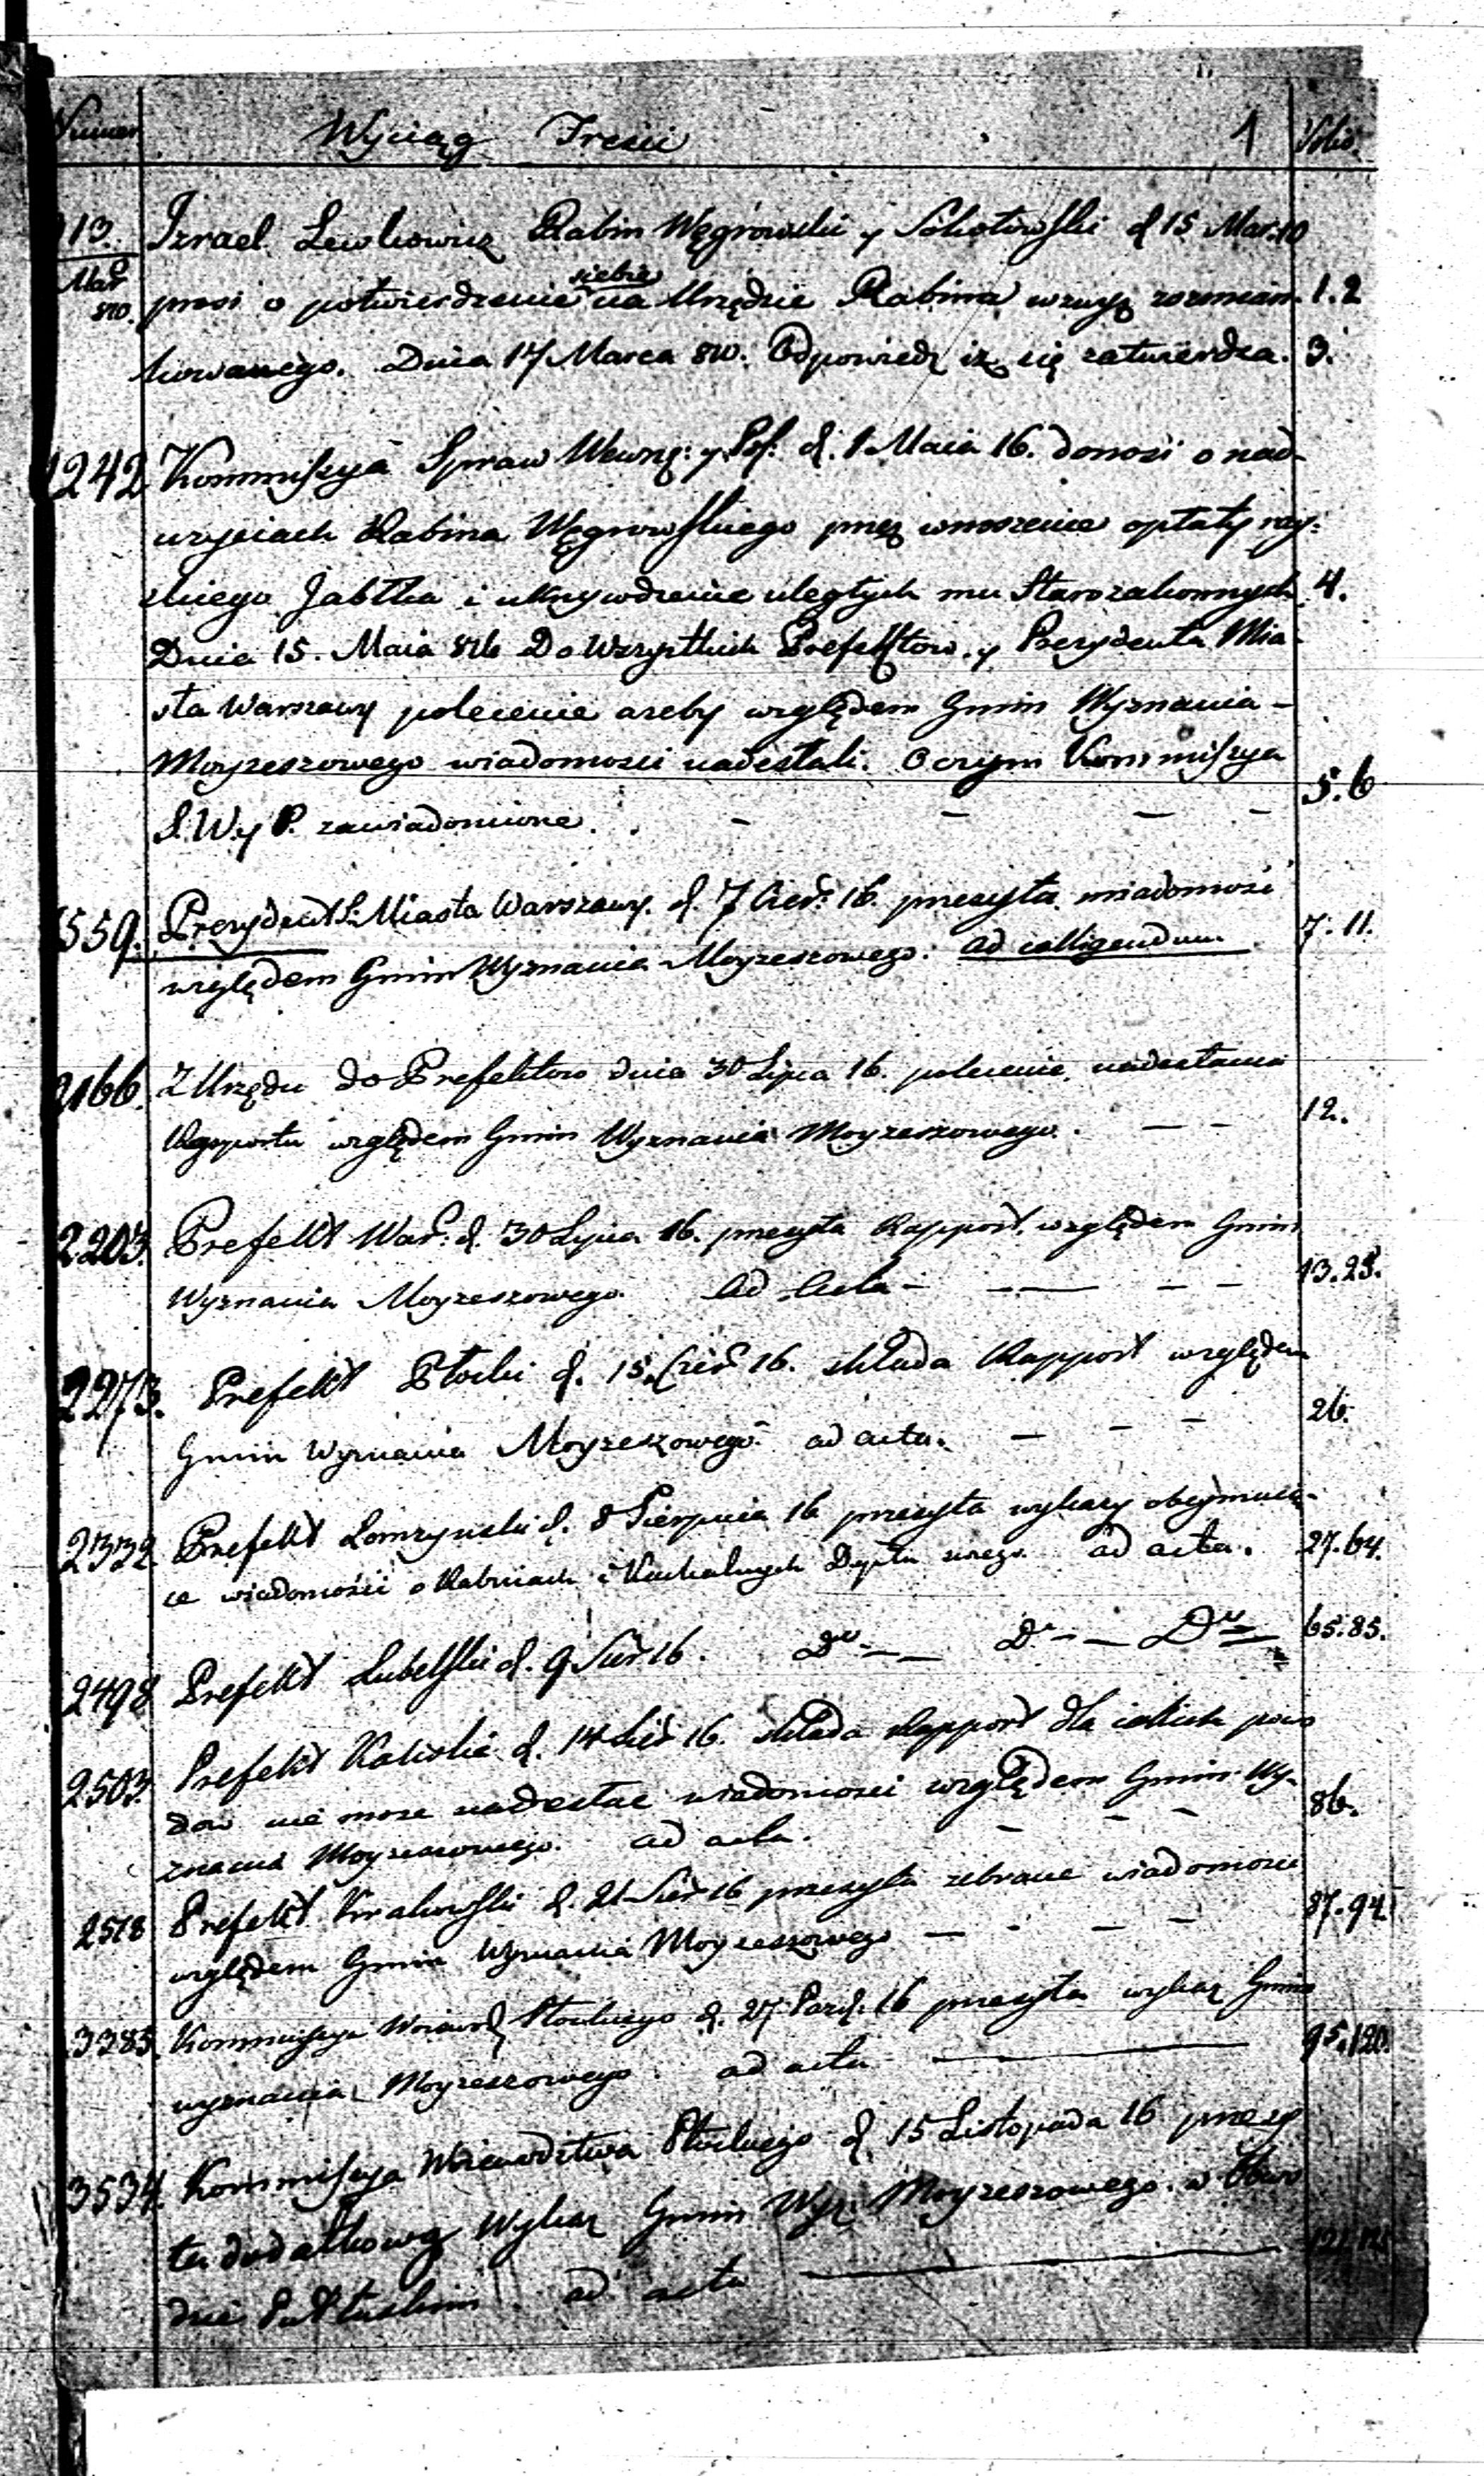 Numer Wyciąg Tresci 1 Folio.
113. Izrael Lewkowicz Rabin Węgrowski y Sokołowski d 15 Mar. 10
Mar
810. prosi o potwierdzenie siebie na Urzędzie Rabina wzwyż 1.2
kowanego. Dnia 17 Marca 810. Odpowiedź iż się zatwierdza. 3.
1242 Kommissya Spraw Wewnę: y Pol. d. 1 Maia 16. donosi o nad-
użyciach Rabina Węgrowskiego przez wnoszenie opłaty ray-
skiego Jabłka i ukrzywdzenie uległych mu Starozakonnych 4.
Dnia 15. Maia 816 Do Wszystkich Prefektow y Prezydenta Mia-
sta Warszawy polecenie azeby względem Gmin Wyznania
Moyzeszowego wiadomosci nadesłali. O czym Kommissya
S.W. y P. zawiadomione. 5.6
1559. Prezydent S. Miasta Warszawy. d. 7 Czer: 16. przesyła wiadomość
względem Gmin Wyznania Moyzeszowego. ad colligendum 7.11.
2166. Z Urzędu do Prefektow dnia 30 Lipca 16. polecenie nadesłania
Rapportu względem Gmin Wyznania Moyzeszowego. 12.
2203. Prefekt War: d. 30 Lipca 16. przesyła Rapport względem Gmin
Wyznania Moyzeszowego. Ad Acta 13.25.
2273. Prefekt Płocki d. 15. Czer 16. składa Rapport względem
Gmin Wyznania Moyzeszowego. ad acta. 26.
2332 Prefekt Łomzynski d. 8 Sierpnia 16 przesyła wykazy obeymuią-
ce wiadomości o Rabinach i Kachalnych Deptu swego ad acta. 27.64.
2498 Prefekt Lubelski d. 9 Sier 16. Dto Dto Dto 65.85.
2503. Prefekt Kaliski d. 14 Sier 16. składa Rapport dla iakich powo
dow nie moze nadesłac wiadomosci względem Gmin Wy-
znania Moyzeszowego. ad acta. 86.
2518 Prefekt Krakowski d. 21 Sier 16 przesyła zebrane wiadomosci
względem Gmin Wyznania Moyzeszowego 87.94
3385. Kommissya Woiewodz Płockiego d. 27 Pazd. 16 przesyła wykaz Gmin
wyznania Moyzeszowego. ad acta 95.120.
3534. Kommissya Woiewodztwa Płockiego d. 15 Listopada 16 przesy
ła dodatkowy Wykaz Gmin Wyz. Moyzeszowego. w Obwo
dzie Pułtuskim. ad acta